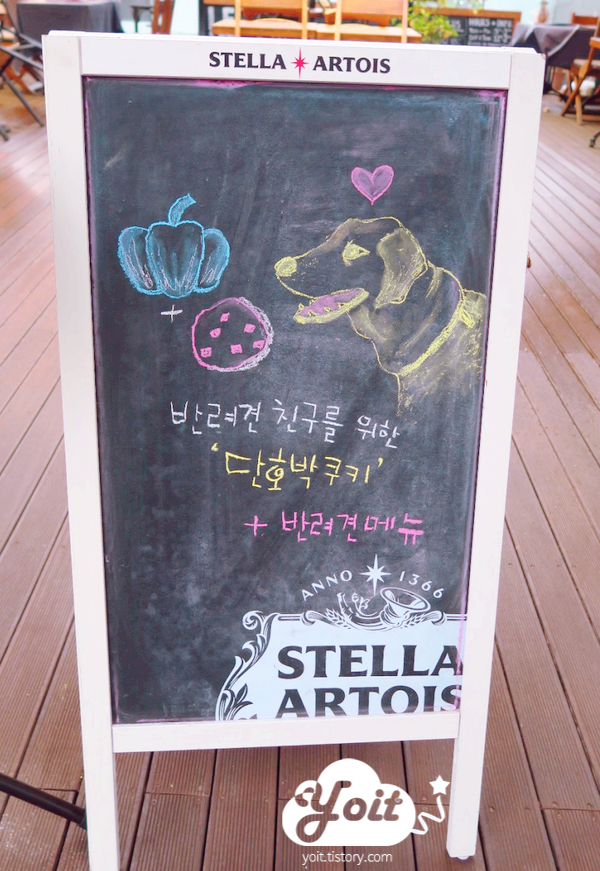 STELLA ARTOIS
반려견 친구를 위한
'단호박쿠키'
+ 반려견메뉴
ANNO 1366
STELLA
ARTOIS
Yoit
yoit.tistory.com